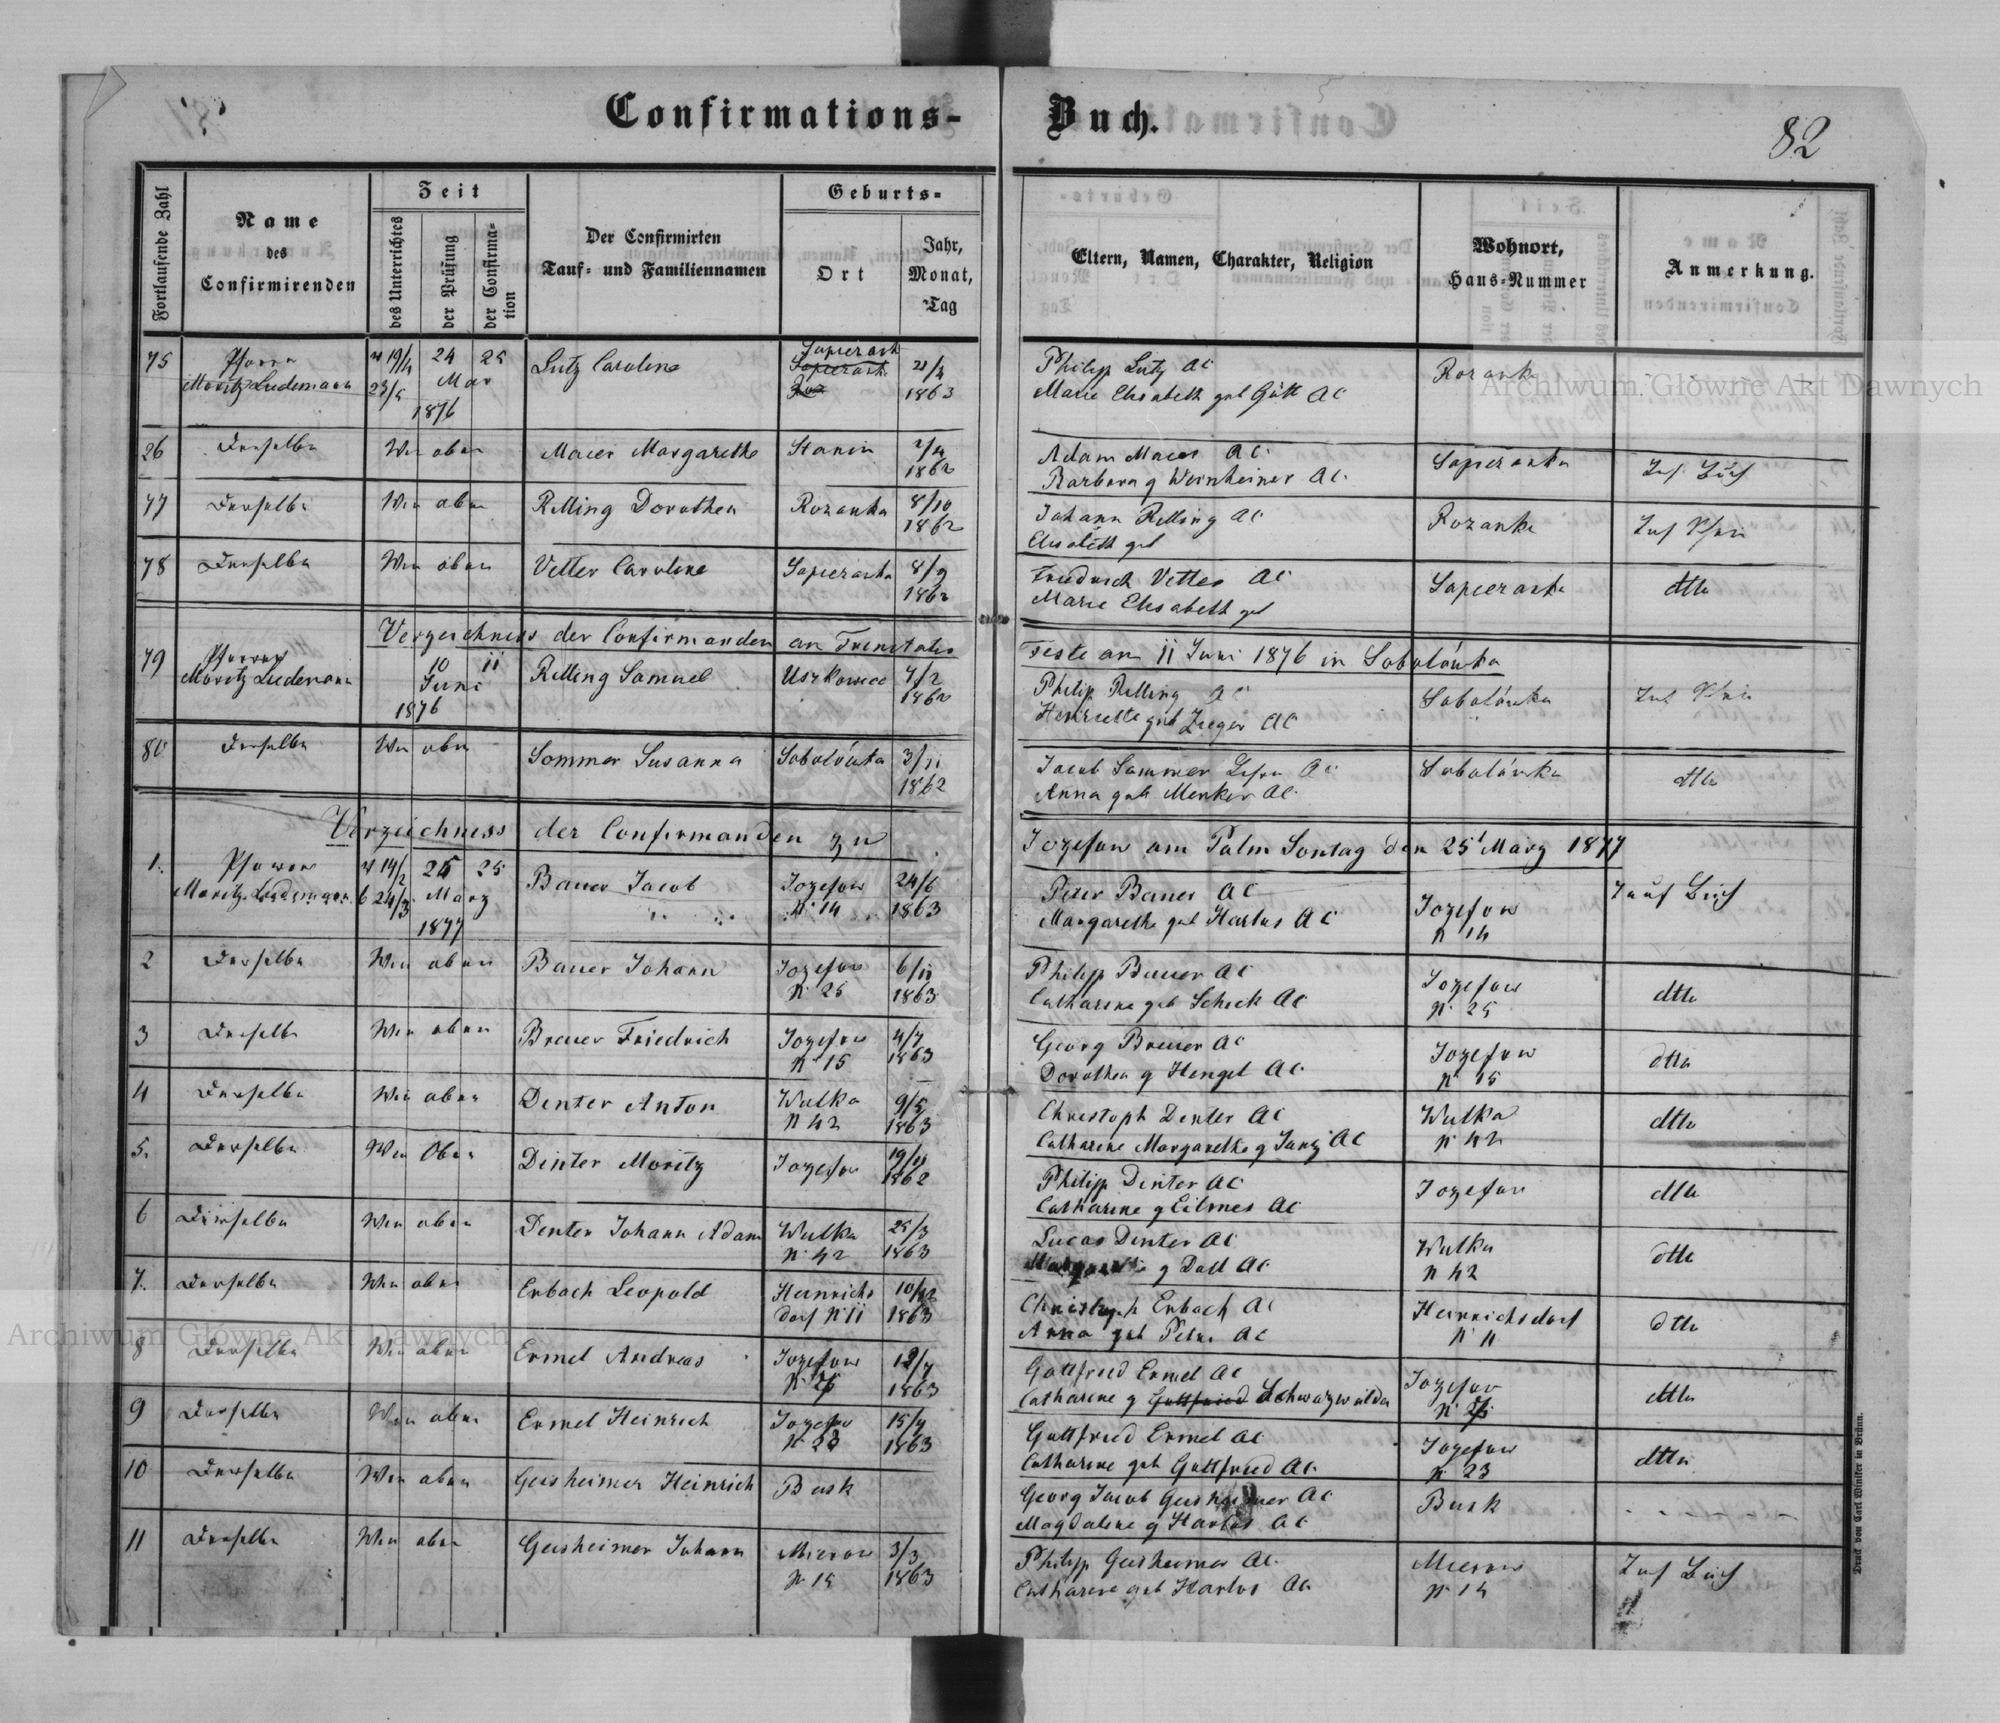 Confirmations-Buch.
82
Fortlaufende Zahl
Name des Confirmirenden
Zeit
des Unterrichtes
der Prüfung
der Confirmation
Der Confirmirten Tauf- und Familiennamen
Geburts-
Ort
Jahr, Monat, Tag
Eltern, Namen, Charakter, Religion
Wohnort, Haus-Nummer
Anmerkung.
75 Pfarrer 19/4 24 25 Lutz Caroline 21/4 Philipp Lutz AC Rozanka
Moritz Ludemann 23/5 Mai 1876 1863 Marie Elisabeth geb Gött AC
26 Derselbe Wie oben Maier Margarethe Stanin 2/4 Adam Maier AC Sapiezanka
1862 Barbara g Wernheiner AC
77 Derselbe Wie oben Rilling Dorothea Rozanka 8/10 Johann Rilling AC Rozanka
1862 Elisabeth geb
78 Derselbe Wie oben Vetter Caroline Sapiezanka 8/9 Friedrich Vetter AC Sapiezanka dtto
1862 Marie Elisabeth geb
Verzeichniss der Confirmanden am Trinitatis Feste am 11 Juni 1876 in Sobolówka
79 Pfarrer 10 11 Rilling Samuel 7/2 Philip Rilling AC Sobolówka
Moritz Ludemann Juni 1876 1862 Henriette geb Zieger AC
80 Derselbe Wie oben Sommer Susanna Sobolówka 3/11 Jacob Sommer AC Sobolówka dtto
1862 Anna geb Menker AC
Verzeichniss der Confirmanden zu Jozefow am Palm Sontag den 25t März 1877
1. Pfarrer 14/2 24 25 Bauer Jacob Jozefow 24/6 Peter Bauer AC Jozefow
Moritz Ludemann 24/3 März 1877 N 14 1863 Margarethe geb Harlos AC N 14
2 Derselbe Wie oben Bauer Johann Jozefow 6/11 Philipp Bauer AC Jozefow dtto
N 25 1863 Catharine geb Scheck AC N 25
3 Derselbe Wie oben Breuer Friedrich Jozefow 4/7 Georg Breuer AC Jozefow dtto
N 15 1863 Dorothea g Hengel AC N 15
4 Derselbe Wie oben Denter Anton Wulka 9/5 Christoph Denter AC Wulka dtto
N 42 1863 Catharine Margarethe g AC N 42
5. Derselbe Wie Oben Dinter Moritz Jozefow 19/11 Philipp Dinter AC Jozefow dtto
1862 Catharine g Eilmes AC
6 Derselbe Wie oben Denter Johann Adam Wulka 25/3 Lucas Dinter AC Wulka dtto
N 42 1863 g Doll AC N 42
7. Derselbe Wie oben Erbach Leopold Heinrichs 10/12 Christoph Erbach AC Heinrichsdorf dtto
dorf N 11 1863 Anna geb Peter AC N 11
8 Derselbe Wie oben Ermel Andreas Jozefow 12/7 Gottfried Ermel AC Jozefow dtto
1863 Catharine g Gottfried Schwarzwälder
9 Derselbe Wie oben Ermel Heinrich Jozefow 15/9 Gottfried Ermel AC Jozefow dtto
N 23 1863 Catharine geb Gottfried AC N 23
10 Derselbe Wie oben Geisheimer Heinrich Busk Georg Jacob Geisheimer AC Busk
Magdalene g Harlos AC
11 Derselbe Wie oben Geisheimer Johann Mierow 3/3 Philipp Geisheimer AC Mierow
N 15 1863 Catharine geb Harlos AC N 15
Druck von Carl Winiker in Brünn.
Archiwum Główne Akt Dawnych
Archiwum Główne Akt Dawnych